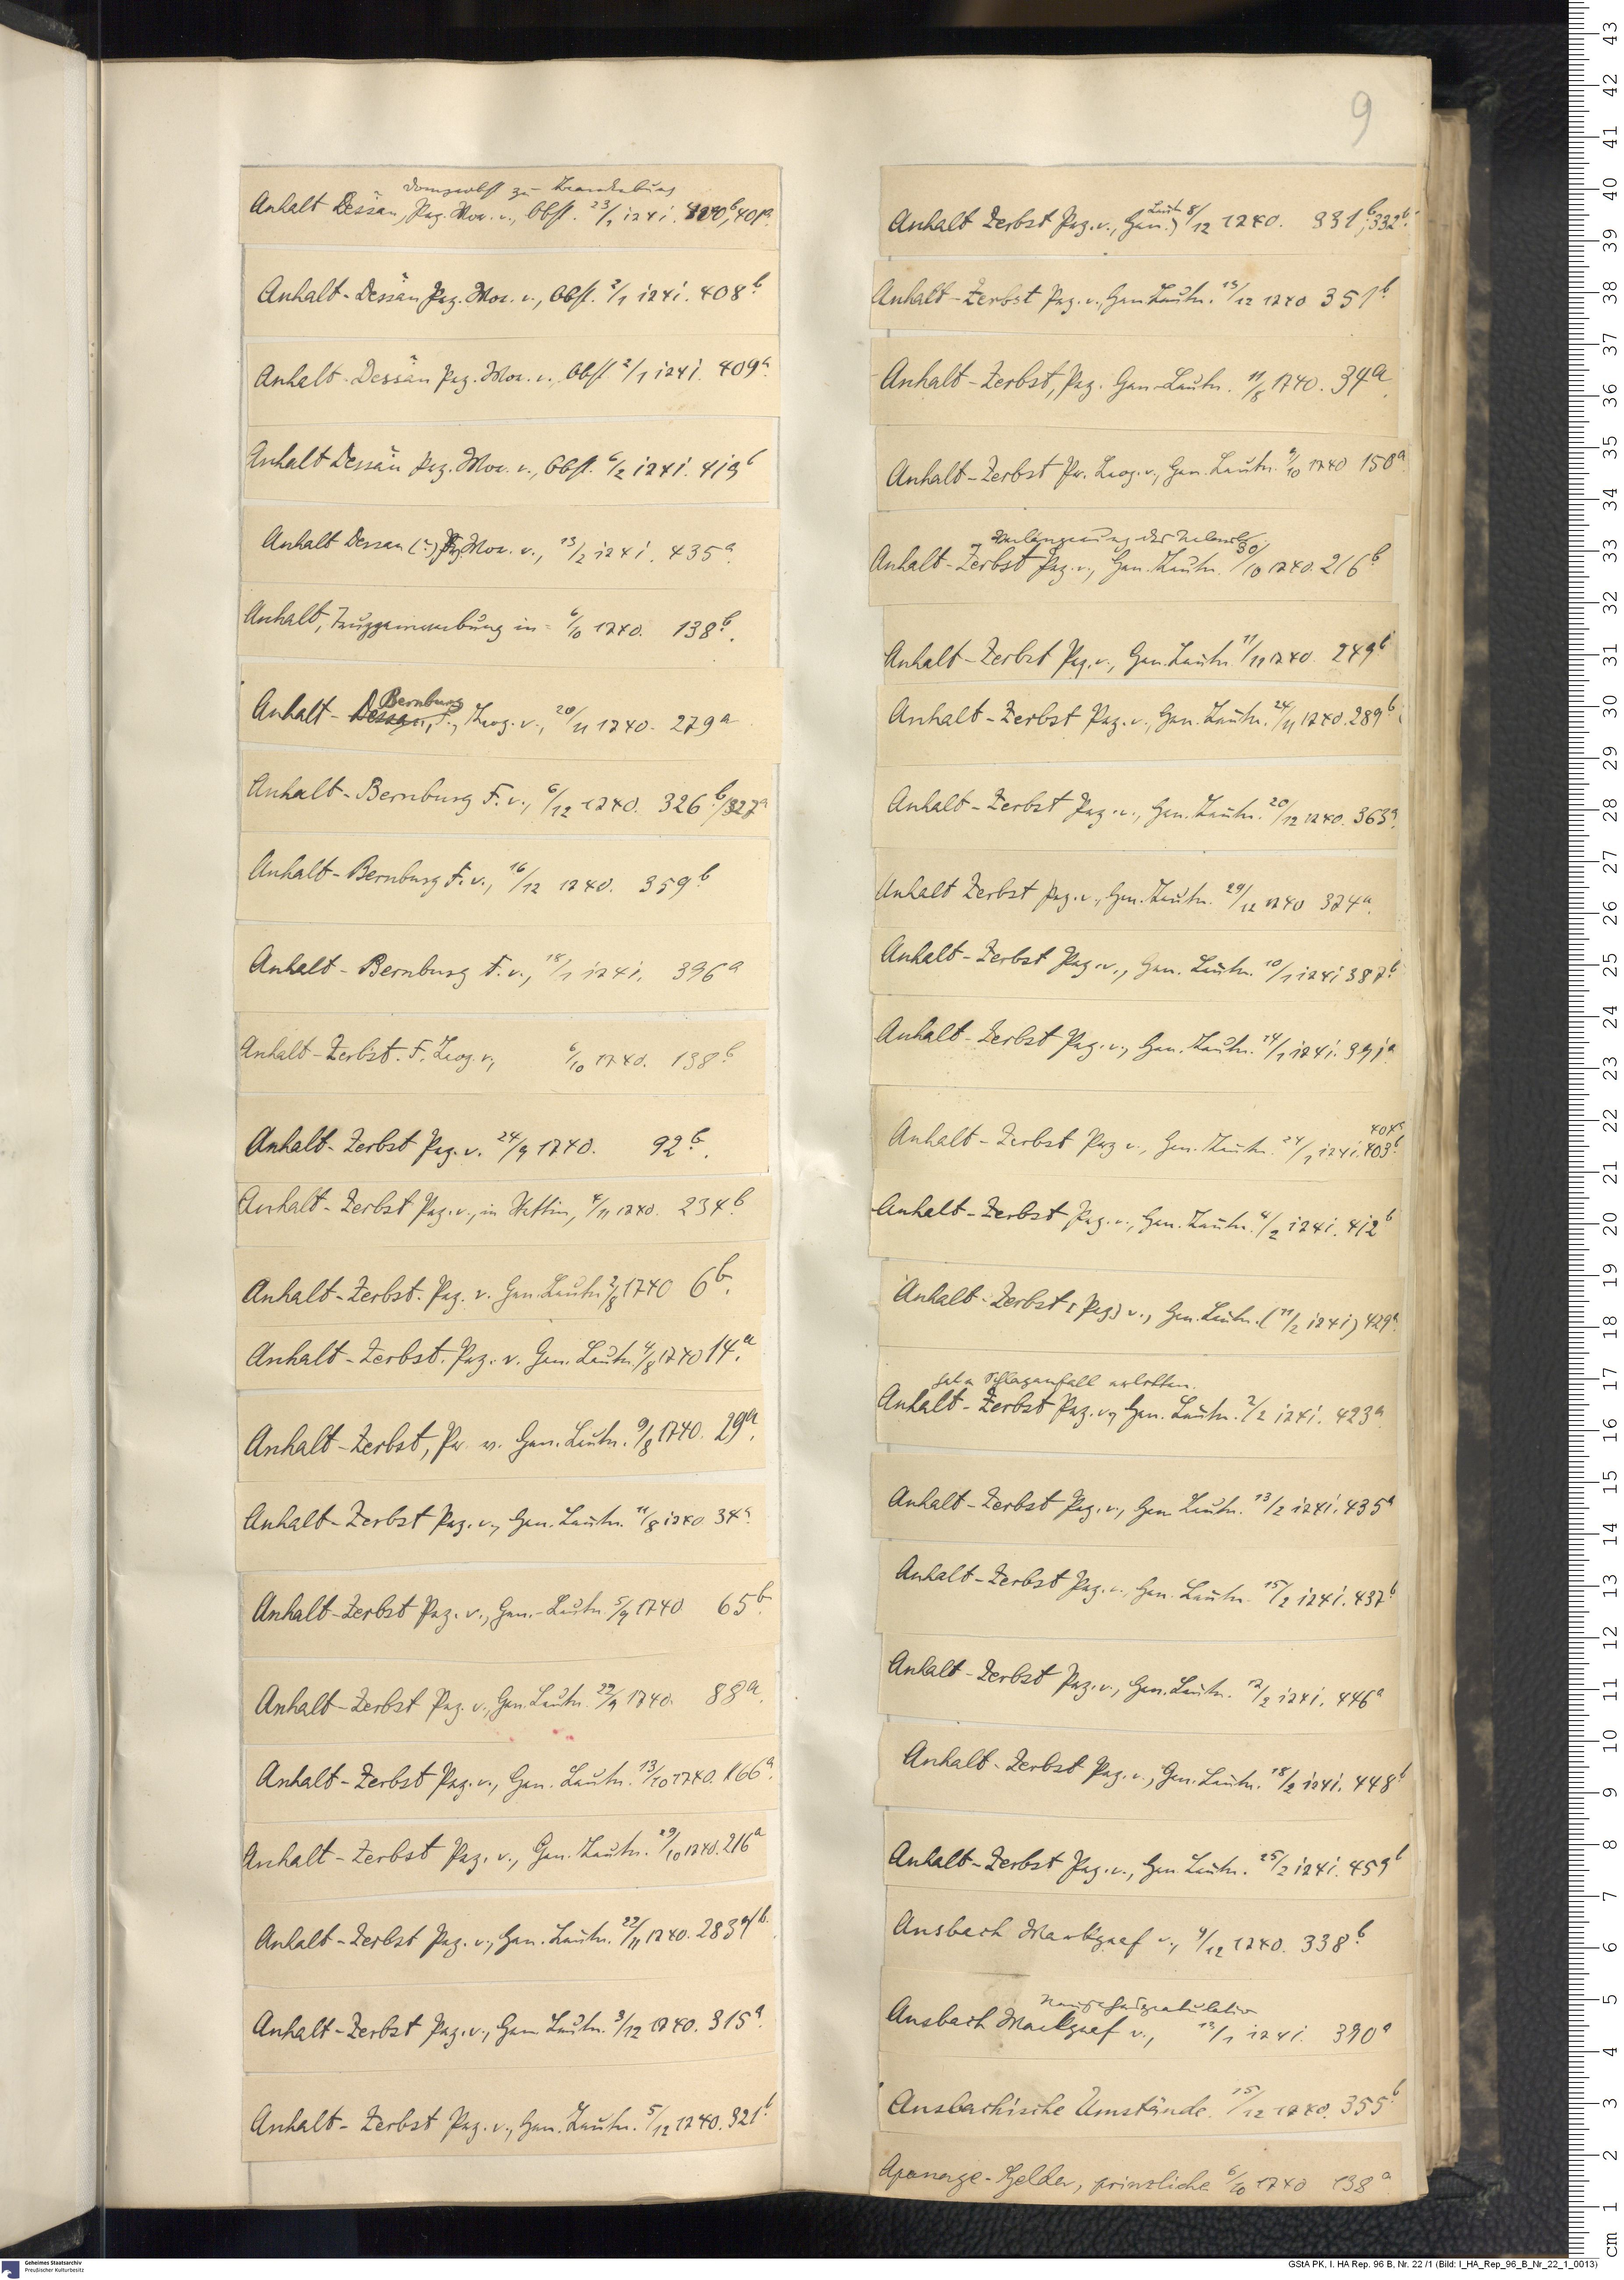 9
Domprobst zu Brandenburg
Anhalt Dessau, Prz. Mor. v., Obst. 23/1 1741. 400b, 401a.
Anhalt-Dessau Prz. Mor. v., Obst. 2/1 1741. 408b
Anhalt-Dessau Prz. Mor. v., Obst 2/1 1741. 409a.
Anhalt Dessau Prz. Mor. v., Obst. 6/2 1741. 419b
Anhalt Dessau (?) Prz Mor. v., 13/2 1741. 435a.
Anhalt, in 6/10 1740. 138b.
Bernburg
Anhalt-Dessau, F., Leog. v., 20/11 1740. 279a
Anhalt-Bernburg F. v., 6/12 1740. 326b/327a
Anhalt-Bernburg F. v., 16/12 1740. 359b
Anhalt-Bernburg F. v., 18/1 1741. 396a
Anhalt-Zerbst. F. Leog. v., 6/10 1740. 138b
Anhalt-Zerbst Prz. v. 24/9 1740. 92b.
Anhalt-Zerbst Prz. v., in Stettin, 4/11 1740. 234b
Anhalt-Zerbst. Prz. v. Gen. Leutn. 2/8 1740 6b.
Anhalt-Zerbst. Prz. v. Gen. Leutn. 4/8 1740 14.a
Anhalt-Zerbst, Pr. v. Gen. Leutn. 9/8 1740. 29a.
Anhalt-Zerbst Prz. v., Gen. Leutn. 11/8 1740 34a.
Anhalt-Zerbst Prz. v., Gen.-Leutn. 5/9 1740 65b.
Anhalt-Zerbst Prz. v., Gen. Leutn. 22/9 1740. 88a.
Anhalt-Zerbst Prz. v., Gen. Leutn. 13/10 1740. 166a.
Anhalt-Zerbst Prz. v., Gen. Leutn. 29/10 1740. 216a
Anhalt-Zerbst Prz. v., Gen. Leutn. 22/11 1740. 283a/b.
Anhalt-Zerbst Prz. v., Gen Leutn. 3/12 1740. 315a.
Anhalt-Zerbst Prz. v., Gen. Leutn. 5/12 1740. 321b.
Anhalt Zerbst Prz. v., Gen. Leutn. 8/12 1740. 331b, 332b.
Anhalt-Zerbst Prz. v., Gen Leutn. 13/12 1740 351b
Anhalt-Zerbst, Prz. Gen-Leutn. 11/8 1740. 34a.
Anhalt-Zerbst Pr. Leog. v., Gen. Leutn. 9/10 1740 150a.
Verlängerung des Urlaubs
Anhalt-Zerbst Prz. v., Gen. Leutn. 30/10 1740. 216b
Anhalt-Zerbst Prz. v., Gen. Leutn. 11/11 1740. 249b
Anhalt-Zerbst Prz. v., Gen. Leutn. 24/11 1740. 289b
Anhalt-Zerbst Prz. v., Gen. Leutn. 20/12 1740. 363a.
Anhalt Zerbst Prz. v., Gen. Leutn. 29/12 1740 374a.
Anhalt-Zerbst Prz. v., Gen. Leutn. 10/1 1741 387b
Anhalt-Zerbst Prz. v., Gen. Leutn. 14/1 1741. 391a
404a
Anhalt-Zerbst Prz v., Gen. Leutn. 24/1 1741. 403b
Anhalt-Zerbst Prz. v., Gen. Leutn. 4/2 1741. 412b
Anhalt-Zerbst (Prz) v., Gen. Leutn. (11/2 1741) 429a.
hat Schlaganfall erlitten.
Anhalt-Zerbst Prz. v., Gen. Leutn. 7/2 1741. 423a
Anhalt-Zerbst Prz. v., Gen Leutn. 13/2 1741. 435a
Anhalt-Zerbst Prz. v., Gen. Leutn. 15/2 1741. 437b
Anhalt-Zerbst Prz. v., Gen. Leutn. 17/2 1741. 446a
Anhalt-Zerbst Prz. v., Gen. Leutn. 18/2 1741. 448b
Anhalt-Zerbst Prz. v., Gen Leutn. 25/2 1741. 459b
Ansbach Markgraf v., 9/12 1740. 338b
Neujahrsgratulation
Ansbach Markgraf v., 13/1 1741. 390a
Ansbachische Umstände. 15/12 1740. 355b
Apanage-Gelder, prinzliche 6/10 1740 138a
43 42 41 40 39 38 37 36 35 34 33 32 31 30 29 28 27 26 25 24 23 22 21 20 19 18 17 16 15 14 13 12 11 10 9 8 7 6 5 4 3 2 1 cm
Geheimes Staatsarchiv
Preußischer Kulturbesitz
GStA PK, I. HA Rep. 96 B, Nr. 22 /1 (Bild: I_HA_Rep_96_B_Nr_22_1_0013)